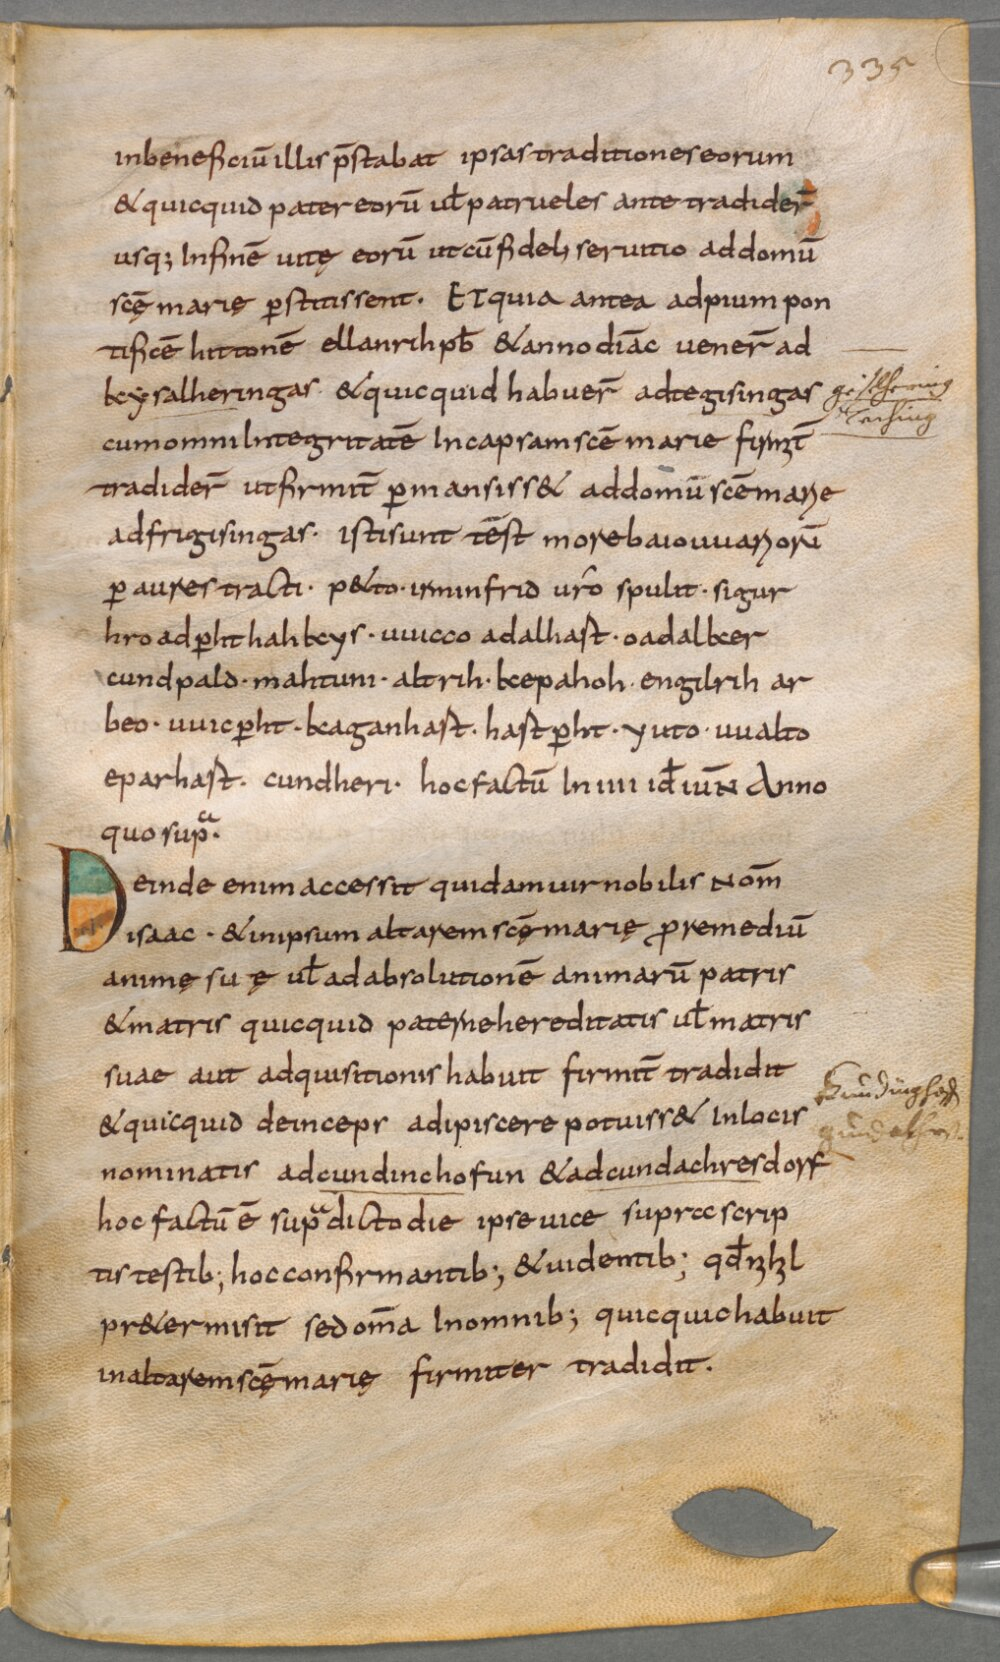 335
inbeneficiū illis p̄stabat ipsas traditiones eorum
& quicquid pater eorū uł patrueles ante tradider̄
usq; Infinē uitę eorū ut cū fideli seruitio ad domū
scę̄ marię p̱stitissent. ET quia antea ad pium pon
tificē hittonē ellanrih pb̄ & anno diāc uener̄ ad
kysalheringas & quicquid habuer̄ ad tegisingas
cum omni Integritatē In capsam scē marie firmt̄
tradider̄ ut firmit̄ p̱mansiss& ad domū scē marie
ad frigisingas. isti sunt tēst more baiouuariorū
p̱ aures tracti. p&to. irminfrid urso spulit. sigur
hroadp̱ht hahkys. uuicco adalhast. oadalker
cundpald. mahtuni. altrih. kepahoh. engilrih ar
beo. uuicp̱ht. kaganhast. hastp̱ht. yuto. uualto
eparhast. cundheri. hoc factū In iiii id̄ iūn Anno
quo supᵃ.
Deinde enim accessit quidam uir nobilis nom̄
isaac. & in ipsum altarem scę̄ marię ꝓ remediū
animę suę uł ad absolutionē animarū patris
& matris quicquid paterne hereditatis uł matris
suae aut adquisitionis habuit firmit̄ tradidit
& quicquid deinceps adipiscere potuiss& In locis
nominatis ad cundinchofun & ad cundachresdorf
hoc factū ē supᵃdicto die ipse uice supra scrip
tis testib; hoc confirmantib; & uidentib; qd̄
pr&ermisit sed om̄a In omnib; quicquic habuit
in altarem scę̄ marię firmiter tradidit.